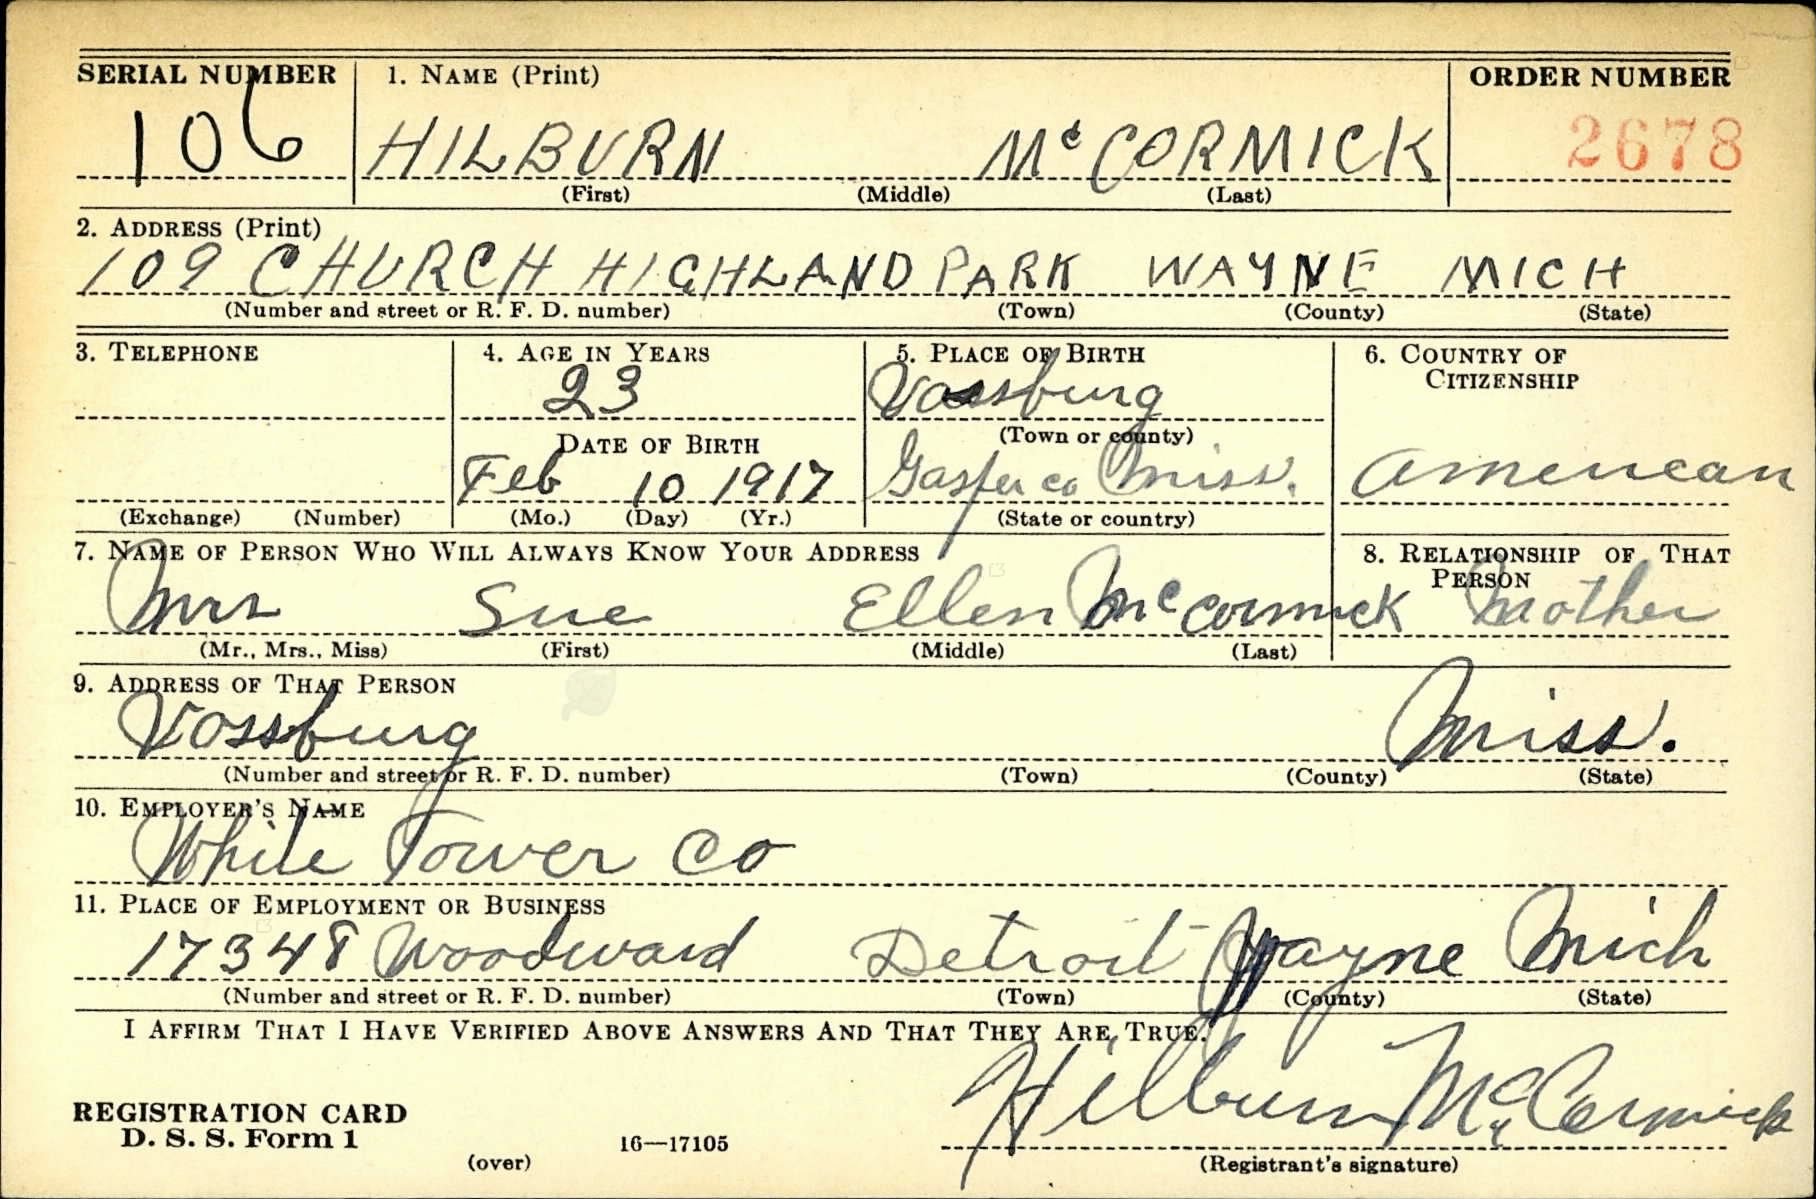 SERIAL NUMBER 1. NAME (Print) ORDER NUMBER
106 HILBURN McCORMICK 2678
(First) (Middle) (Last)
2. ADDRESS (Print)
109 CHURCH HIGHLAND PARK WAYNE MICH
(Number and street or R. F. D. number) (Town) (County) (State)
3. TELEPHONE 4. AGE IN YEARS 5. PLACE OF BIRTH 6. COUNTRY OF
CITIZENSHIP
23 Vossburg
DATE OF BIRTH (Town or county)
Feb 10 1917 Gasper co Miss. American
(Exchange) (Number) (Mo.) (Day) (Yr.) (State or country)
7. NAME OF PERSON WHO WILL ALWAYS KNOW YOUR ADDRESS 8. RELATIONSHIP OF THAT
PERSON
Mrs Sue Ellen McCormick Mother
(Mr., Mrs., Miss) (First) (Middle) (Last)
9. ADDRESS OF THAT PERSON
Vossburg Miss.
(Number and street or R. F. D. number) (Town) (County) (State)
10. EMPLOYER'S NAME
White Tower Co
11. PLACE OF EMPLOYMENT OR BUSINESS
17348 Woodward Detroit Wayne Mich
(Number and street or R. F. D. number) (Town) (County) (State)
I AFFIRM THAT I HAVE VERIFIED ABOVE ANSWERS AND THAT THEY ARE TRUE.
Hilburn McCormick
REGISTRATION CARD
D. S. S. Form 1 16—17105
(over) (Registrant's signature)